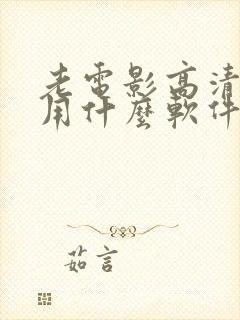 老電影高清
用什麼軟件
茹言